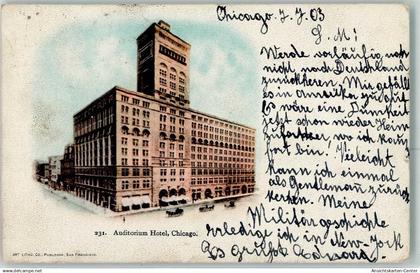 Chicago. 7. 7. 03
L. M!
Werde vorläufig noch
nicht nach Deutschland
zurückkehren. Mir gefällt
es in Amerika zu gut
Es wäre eine Dummheit
jetzt schon wieder Heim
zu wo ich kaum
fort bin! Vieleicht
kann ich einmal
als Gentleman zurück
kerken. Meine
Militärgeschichte
erledige ich in New-York
Es grüßt
231. Auditorium Hotel, Chicago.
ART LITHO. CO., PUBLISHER, SAN FRANCISCO.
Ansichtskarten-Center.de